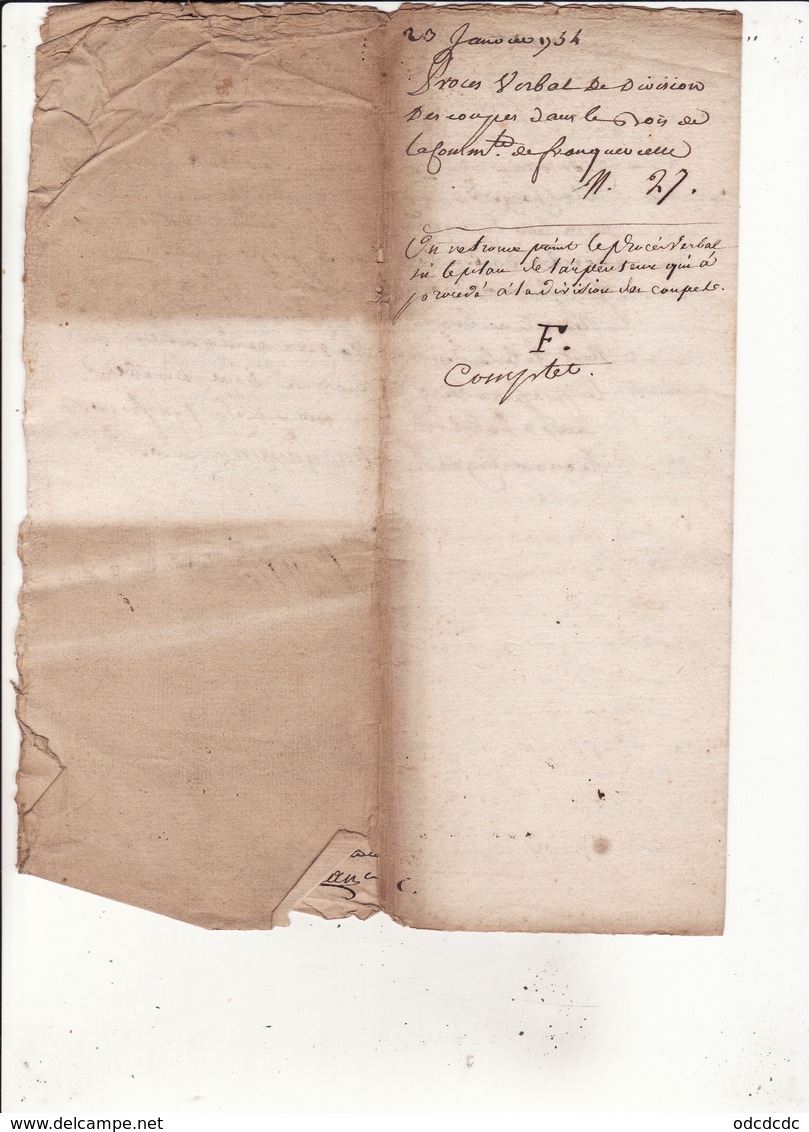 23 Janvier 1734
Procés Verbal De Division
Des coupes dans le Bois de
la Comm.té de franquevielle
N. 27.
On ne trouve point le procés verbal
ni le plan de l'arpenteur qui a
procedé á la division des coupes.
F.
Comptet.
delcampe.net
odcdcdc